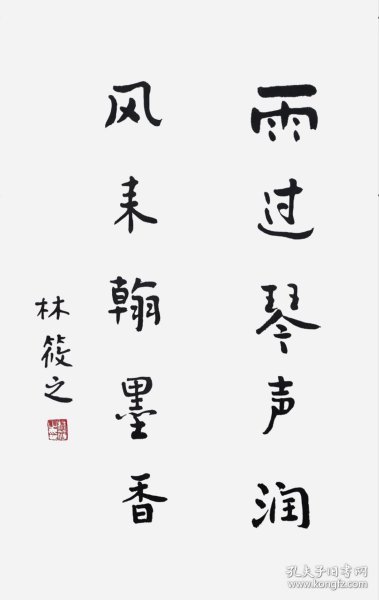 雨过琴声润
风来翰墨香
林筱之
孔夫子旧书网
kongfz.com